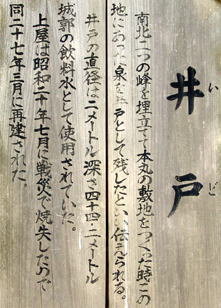 井戸
いど
南北二つの峰を埋立てて本丸の敷地をつくった時この
地にあった泉を井戸として残したといい伝えられる。
井戸の直径は二メートル深さ四十四・二メートル
城郭の飲料水として使用されていた。
上屋は昭和二十年七月に戦災で焼失したので
同二十七年三月に再建された。